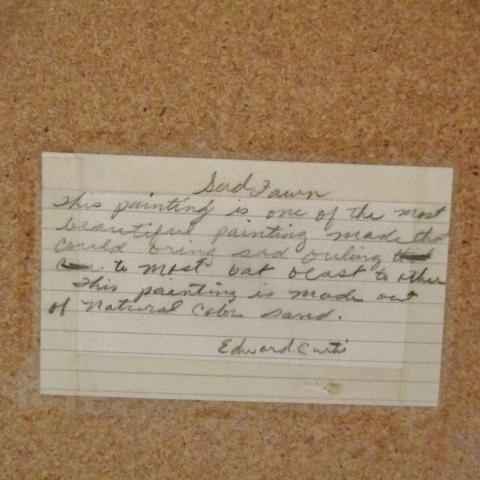 Sad Fawn
This painting is one of the most
beautiful painting made that
could bring sad
to most but to other
This painting is made out
of natural color sand.
Edward Curti